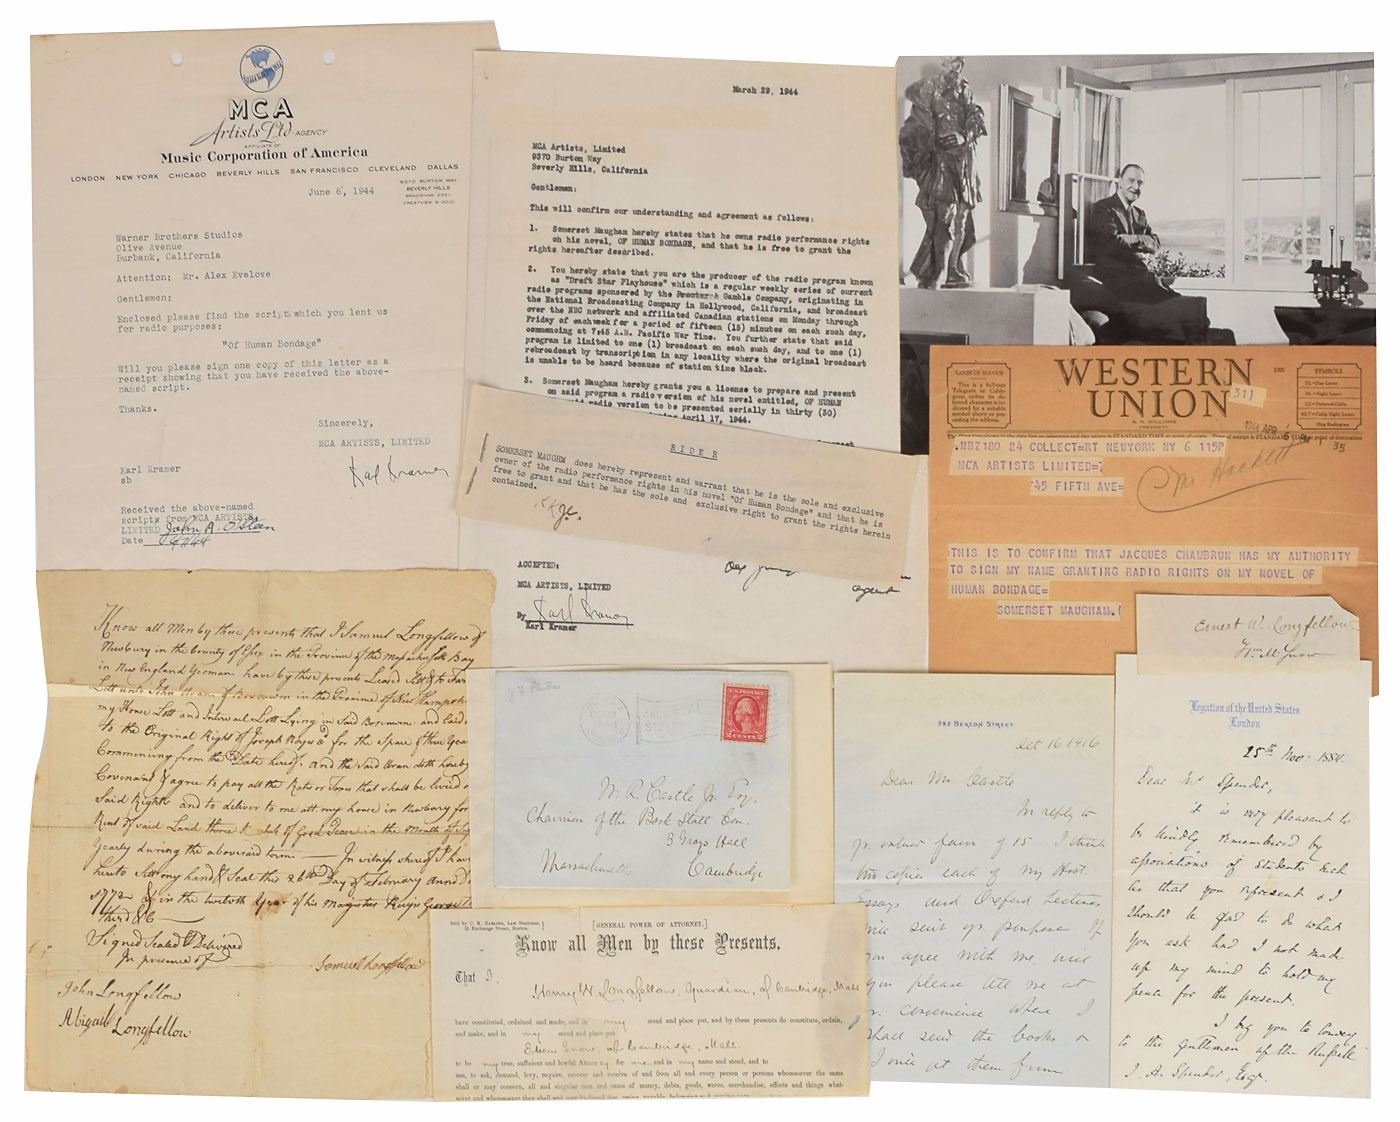 MCA
Artists Ltd. AGENCY
AFFILIATE OF
Music Corporation of America
LONDON NEW YORK CHICAGO BEVERLY HILLS SAN FRANCISCO CLEVELAND DALLAS
9370 BURTON WAY
BEVERLY HILLS
June 6, 1944
Warner Brothers Studios
Olive Avenue
Burbank, California
Attention: Mr. Alex Evelove
Gentlemen:
Enclosed please find the script which you lent us
for radio purposes:
"Of Human Bondage"
Will you please sign one copy of this letter as a
receipt showing that you have received the above-
named script.
Thanks.
Sincerely,
MCA ARTISTS, LIMITED
Karl Kramer
Karl Kramer
sb
Received the above-named
scripts from MCA ARTISTS,
LIMITED
Date
March 29, 1944
MCA Artists, Limited
9370 Burton Way
Beverly Hills, California
Gentlemen:
This will confirm our understanding and agreement as follows:
1. Somerset Maugham hereby states that he owns radio performance rights
oh his novel, OF HUMAN BONDAGE, and that he is free to grant the
rights hereafter described.
2. You hereby state that you are the producer of the radio program known
as "Draft Star Playhouse" which is a regular weekly series of current
radio programs sponsored by the Gamble Company, originating in
the National Broadcasting Company in Hollywood, California, and broadcast
over the NBC network and affiliated Canadian stations on Monday through
Friday of eachweek for a period of fifteen (15) minutes on each such day,
commencing at 7:45 A.M. Pacific War Time. You further state that said
program is limited to one (1) broadcast on each such day, and to one (1)
rebroadcast by transcription in any locality where the original broadcast
is unable to be heard because of station time block.
3. Somerset Maugham hereby grants you a license to prepare and present
on said program a radio version of his novel entitled, OF HUMAN
radio version to be presented serially in thirty (30)
April 17, 1944
RIDER
SOMERSET MAUGHM does hereby represent and warrant that he is the sole and exclusive
owner of the radio performance rights in his novel "Of Human Bondage" and that he is
free to grant and that he has the sole and exclusive right to grant the rights herein
contained.
ACCEPTED:
MCA ARTISTS, LIMITED
By Karl Kramer
Karl Kramer
agent
WESTERN
UNION
A. N. WILLIAMS
PRESIDENT
CLASS OF SERVICE
This is a full-rate
Telegram or Cable-
gram unless its
deferred character is in-
dicated by a suitable
symbol above or pre-
ceding the address.
SYMBOLS
31)
.NBZ180 24 COLLECT=RT NEWYORK NY 6 115P
MCA ARTISTS LIMITED=
745 FIFTH AVE=
Mr. Hackett
35
THIS IS TO CONFIRM THAT JACQUES CHAMBRUN HAS MY AUTHORITY
TO SIGN MY NAME GRANTING RADIO RIGHTS ON MY NOVEL OF
HUMAN BONDAGE=
SOMERSET MAUGHAM.
Ernest W. Longfellow
Wm. M. Snow
Know all Men by these presents that I Samuel Longfellow of
Newbury in the County of Essex in the Province of the Massachusetts Bay
in New England Yeoman have by these presents Leased
Lott unto John in the Province of New Hampsh
my House Lott and Intervail Lott Lying in Said and
to the Original Right of Joseph for the Space of three Years
Commencing from the Date hereof and the said
Covenant & agree to pay all the Rates or Taxes that shall be levied
Said Rights and to deliver to me att my house in Newbury for
Rent of said Land three
Yearly during the abovesaid term In witness whereof I have
hereto Sett my hand & Seal this 26th Day of February Anno
1772 & in the twelvth Year of his Majesties Reign George
third &c
Signed Sealed & Delivered
In presence of
Samuel Longfellow
John Longfellow
Abigail Longfellow
UNITED STATES POSTAGE
2 CENTS 2
W. R. Castle Jr. Esq.
Chairman of the Book Stall Com.
3 Grays Hall
Massachusetts
Cambridge
Sold by C. K. Darling, Law Stationer,
Exchange Street, Boston.
[GENERAL POWER OF ATTORNEY.]
Know all Men by these Presents,
That I, Henry W. Longfellow, Guardian, of Cambridge, Mass
have constituted, ordained and made, and in my stead and place put, and by these presents do constitute, ordain,
and make, and in my stead and place put
Eben Snow, of Cambridge, Mass.
to be my true, sufficient and lawful Attorney for me and in my name and stead, and to
use, to ask, demand, levy, require, recover and receive of and from all and every person or persons whomsoever the same
shall or may concern, all and singular sums of money, debts, goods, wares, merchandise, effects and things what-
382 BEACON STREET
Oct 16 1916
Dear Mr. Castle
In reply to
yr. notice given of 15 I think
two copies each of my Hist.
Essays and Oxford Lectures
will suit yr. purpose If
you agree with me, will
you please tell me at
yr. convenience where I
shall send the books or
Legation of the United States
London
25th Nov: 1884.
Dear Mr Spender,
it is very pleasant to
be kindly remembered by
associations of Students such
as that you represent & I
should be glad to do what
you ask had I not made
up my mind to hold my
peace for the present.
I beg you to convey
to the gentlemen of the Russell
J. A. Spender, Esqr.